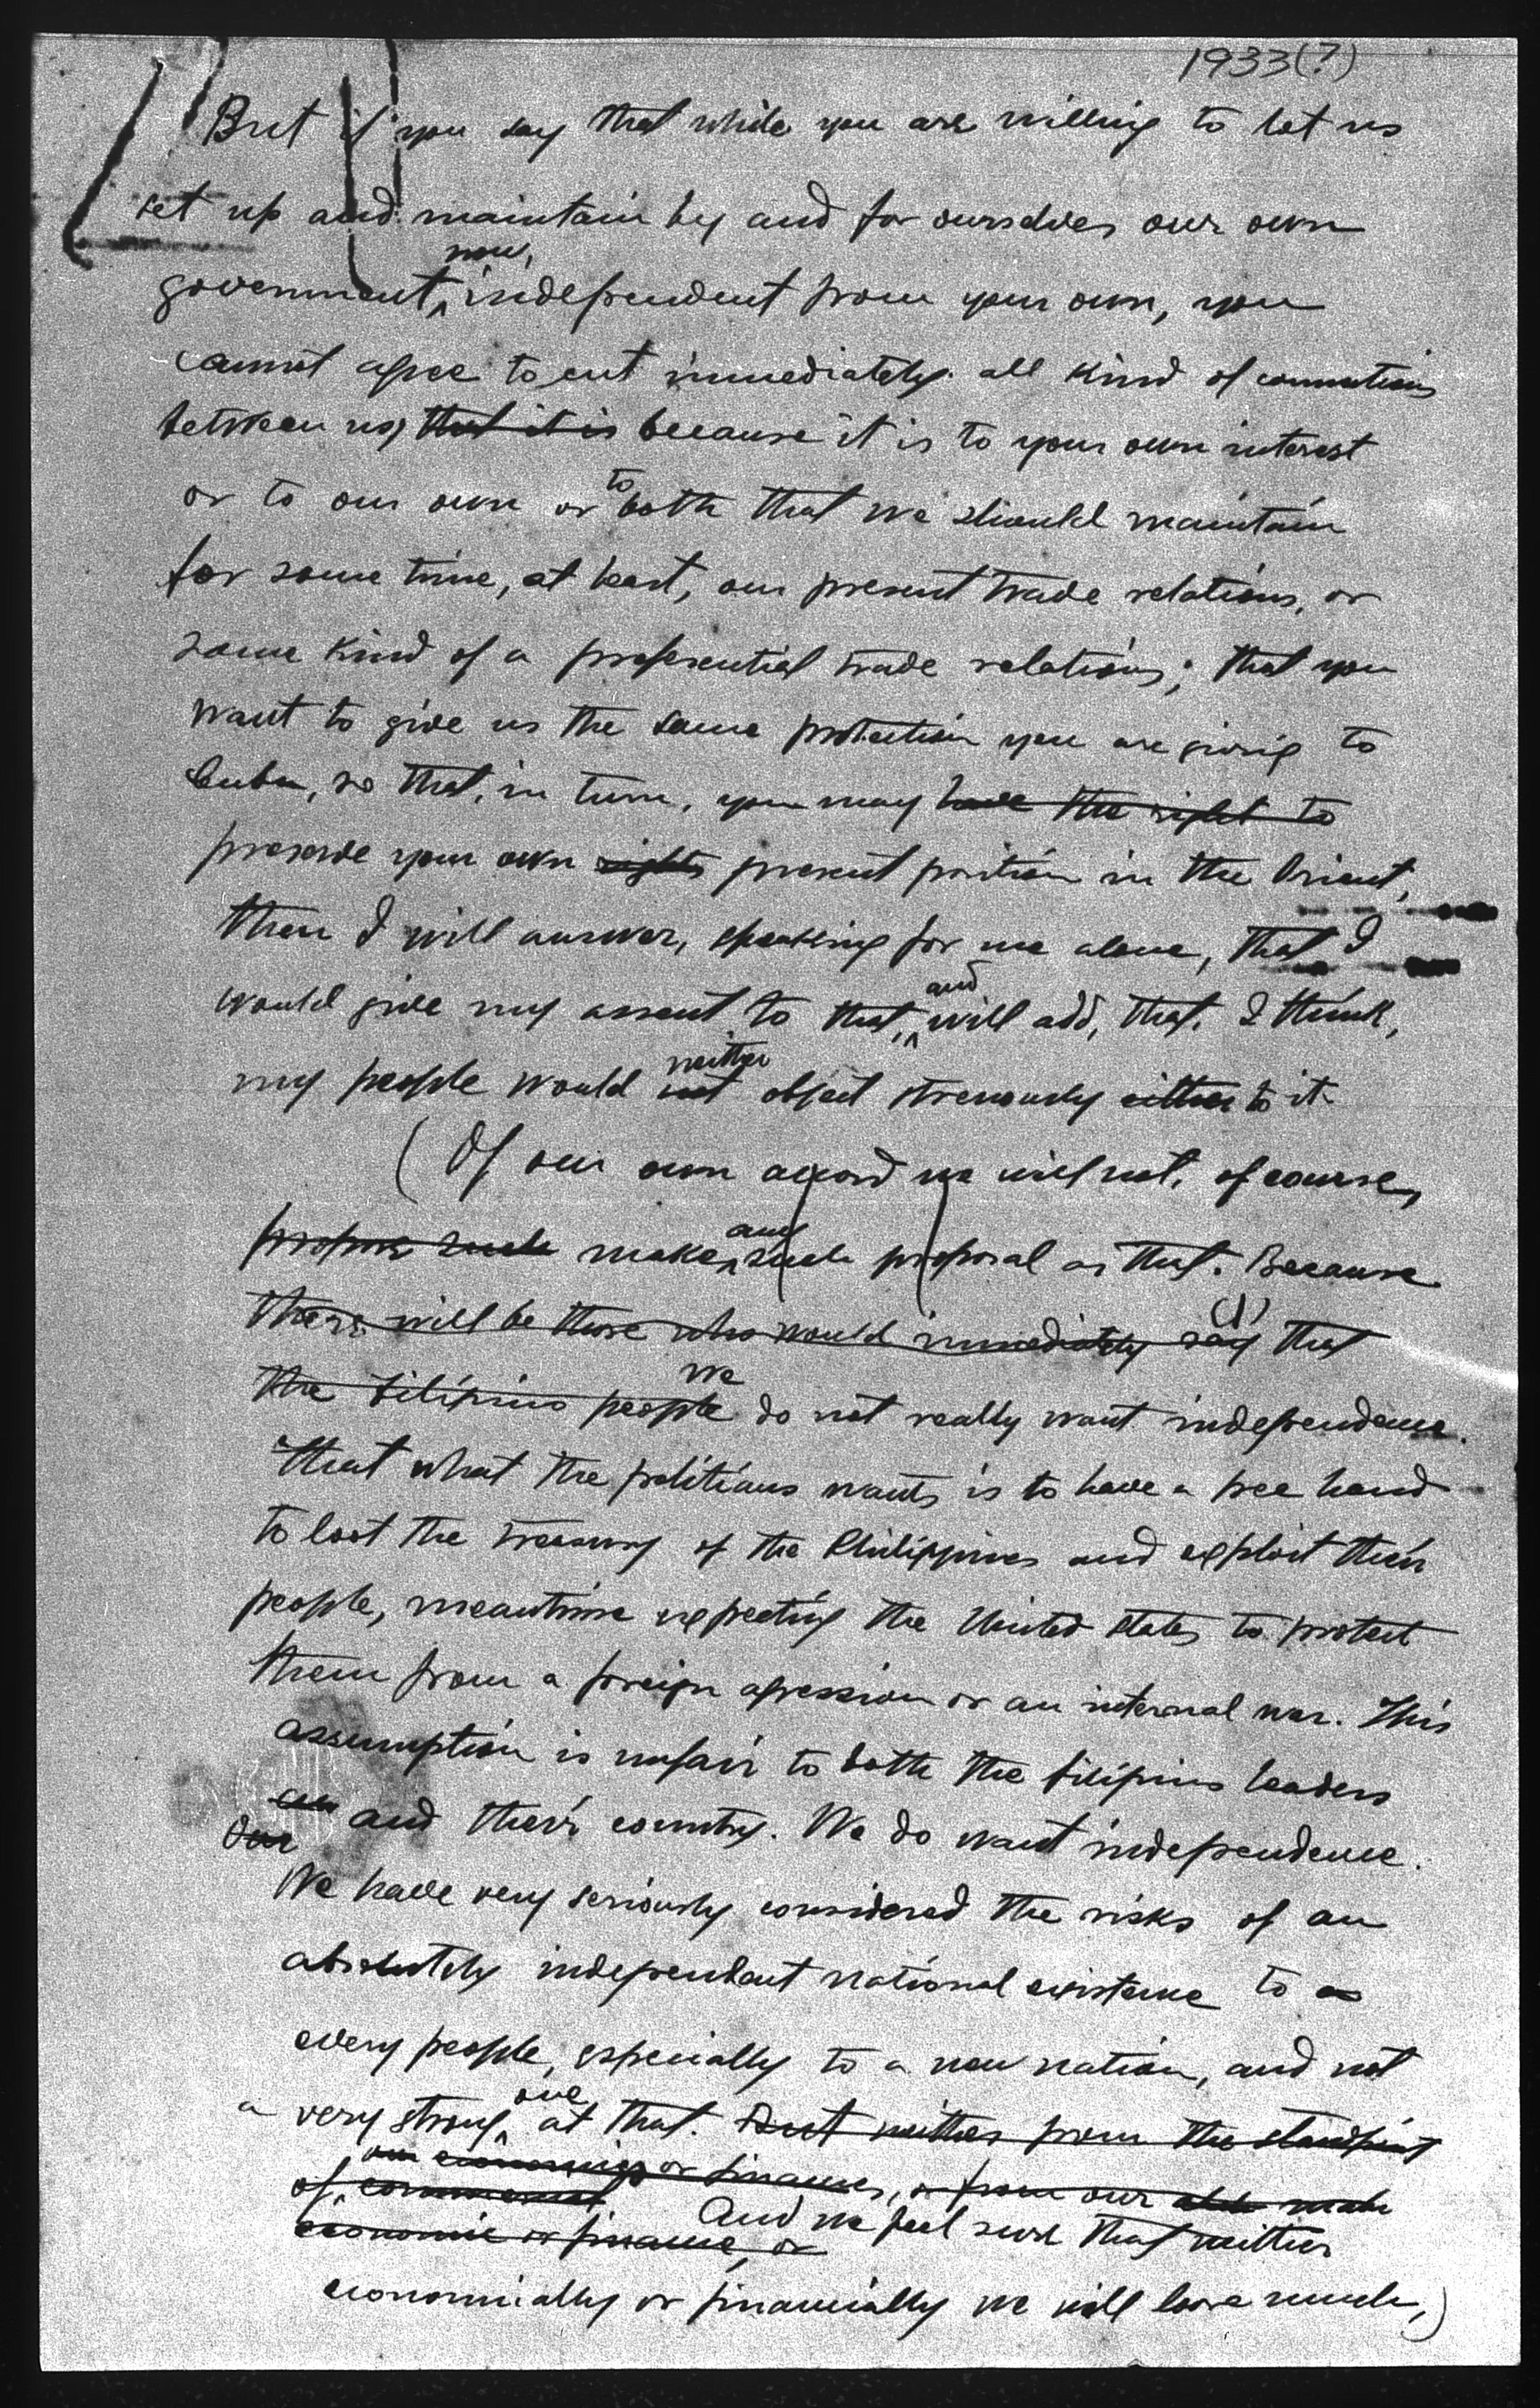 1933(?)
But if you say that while you are willing to let us
set up and maintain by and for ourselves our own
now,
government, independent from your own, you
cannot agree to cut immediately all kind of connections
between us, that it is because it is to your own interest
to
or to our own or both that we should maintain
for some time, at least, our present trade relations, or
some kind of a preferential trade relations; that you
want to give us the same protection you are giving to
Cuba, so that, in turn, you may have the right to
preserve your own rights present position in the Orient,
then I will answer, speaking for me alone, that I
and
would give my assent to that, will add, that, I think,
neither
my people would not object strenously either to it.
(Of our own accord we will not, of course,
any
propose such make such proposal as that. Because
(1)
there will be those who would immediately say that
we
the Filipino people do not really want independence.
that what the politians wants is to have a free hand
to loot the treasury of the Philippines and exploit their
people, meantime expecting the United States to protect
them from a foreign agression or an internal war. This
assumption is unfair to both the Filipino leaders
and their country. We do want independence.
Our
We have very seriously considered the risks of an
absolutely independent national existence to
every people, especially to a new nation, and not
one
a very strong at that. But neither from the standpoint
our economies or finances, or from our
of commercial
And we feel sure that neither
economic or finance, or
economically or financially we will loose much,)